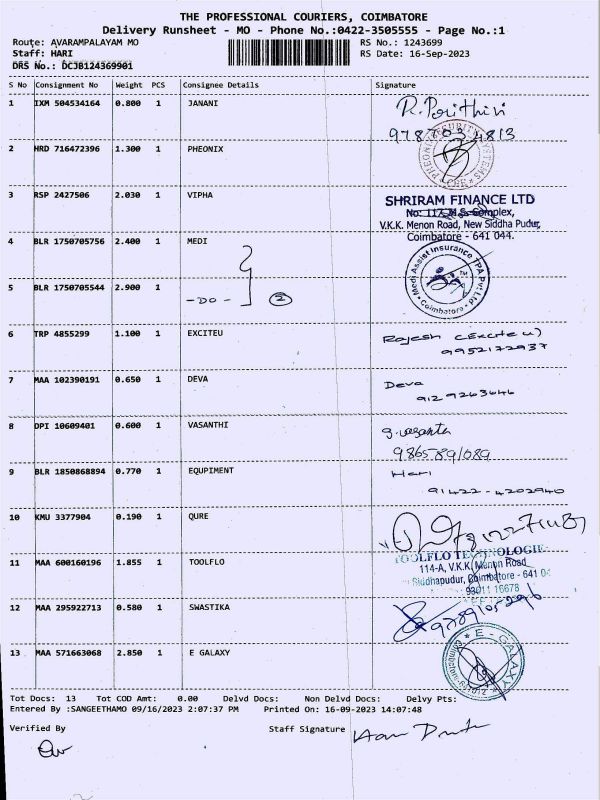 THE PROFESSIONAL COURIERS, COIMBATORE
Delivery Runsheet - MO - Phone No.:0422-3505555 - Page No.:1
Route: AVARAMPALAYAM MO RS No.: 1243699
Staff: HARI RS Date: 16-Sep-2023
DRS No.: DCJB124369901
S No Consignment No Weight PCS Consignee Details Signature
1 IXM 504534164 0.800 1 JANANI
2 HRD 716472396 1.300 1 PHEONIX
PHEONIX SECURITY SYSTEMS
3 RSP 2427506 2.030 1 VIPHA
SHRIRAM FINANCE LTD
No: 117, M.S. Complex,
V.K.K. Menon Road, New Siddha Pudur,
Coimbatore - 641 044.
4 BLR 1750705756 2.400 1 MEDI
Medi Assist Insurance TPA Pvt Ltd
Coimbatore
5 BLR 1750705544 2.900 1 -DO- 2
6 TRP 4855299 1.100 1 EXCITEU
Rajesh (Excite u)
9952172937
7 MAA 102390191 0.650 1 DEVA
Deva
9129263646
8 DPI 10609401 0.600 1 VASANTHI
g.vasanta
9 BLR 1850868894 0.770 1 EQUPIMENT
Hari
91422-4202940
10 KMU 3377904 0.190 1 QURE
11 MAA 600160196 1.855 1 TOOLFLO
TOOLFLO TECHNOLOGIE
114-A, V.K.K. Menon Road
Siddhapudur, Coimbatore - 641 04
93011 16678
12 MAA 295922713 0.580 1 SWASTIKA
13 MAA 571663068 2.850 1 E GALAXY
E - GALAXY
Tot Docs: 13 Tot COD Amt: 0.00 Delvd Docs: Non Delvd Docs: Delvy Pts:
Entered By :SANGEETHAMO 09/16/2023 2:07:37 PM Printed On: 16-09-2023 14:07:48
Verified By Staff Signature